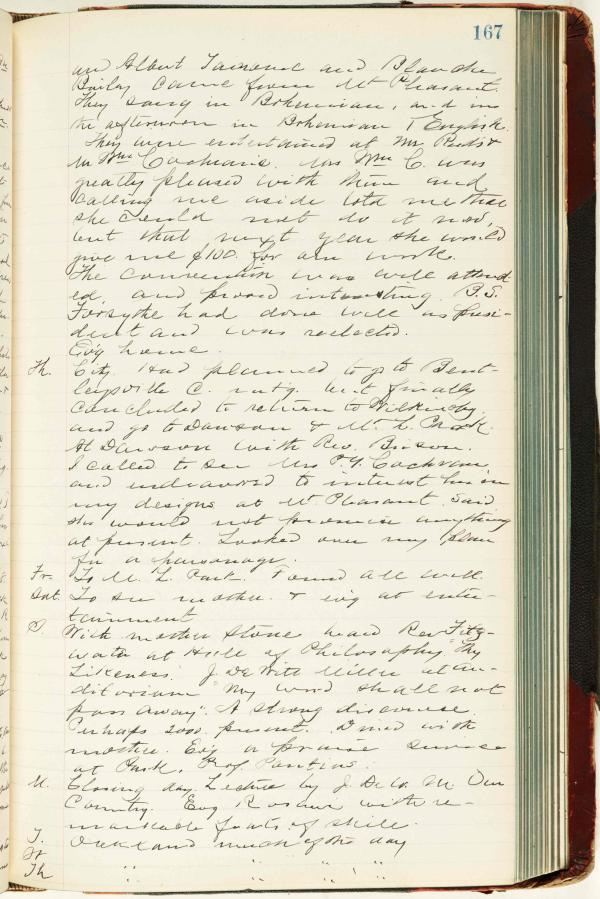 167
and Albert and Blanche
Bailey came from Mt Pleasant.
They sang in Bohemian, and in
the afternoon in Bohemian & English.
They were entertained at Mr &
Mr Wm Cochran's. Mrs Wm C. was
greatly pleased with them and
calling me aside told me that
she could not do it now,
but that next year she would
give me $100. for our work.
The convention was well attend
ed, and proved interesting. B.S.
Forsythe had done well as presi-
dent and was reelected.
Evg home.
Th. City. Had planned to go to Bent-
leysville C. mtg. but finally
concluded to return to Wilkinsbg.
and go to Dawson & Mt. L. Park.
At Dawson with Rev.
I called to see Mrs P.G. Cochran
and endeavored to interest her in
my designs at Mt. Pleasant. Said
she would not promise anything
at present. Looked over my plan
for a parsonage.
Fr. To M. L. Park. Found all well.
Sat. To see mother. & evg at enter-
tainment
S. With mother Stone heard Rev Fitz-
water at Hall of Philosophy. "Thy
Likeness". J DeWitt Miller at au-
ditorium "My word shall not
pass away". A strong discourse.
Perhaps 2000 present. Dined with
mother. Evg a praise service
at Park. Prof.
M. Closing day. Lecture by J. De W. M. Our
Country. Evg with re-
markable feats of skill.
T. Oakland much of the day
W
Th " " " "